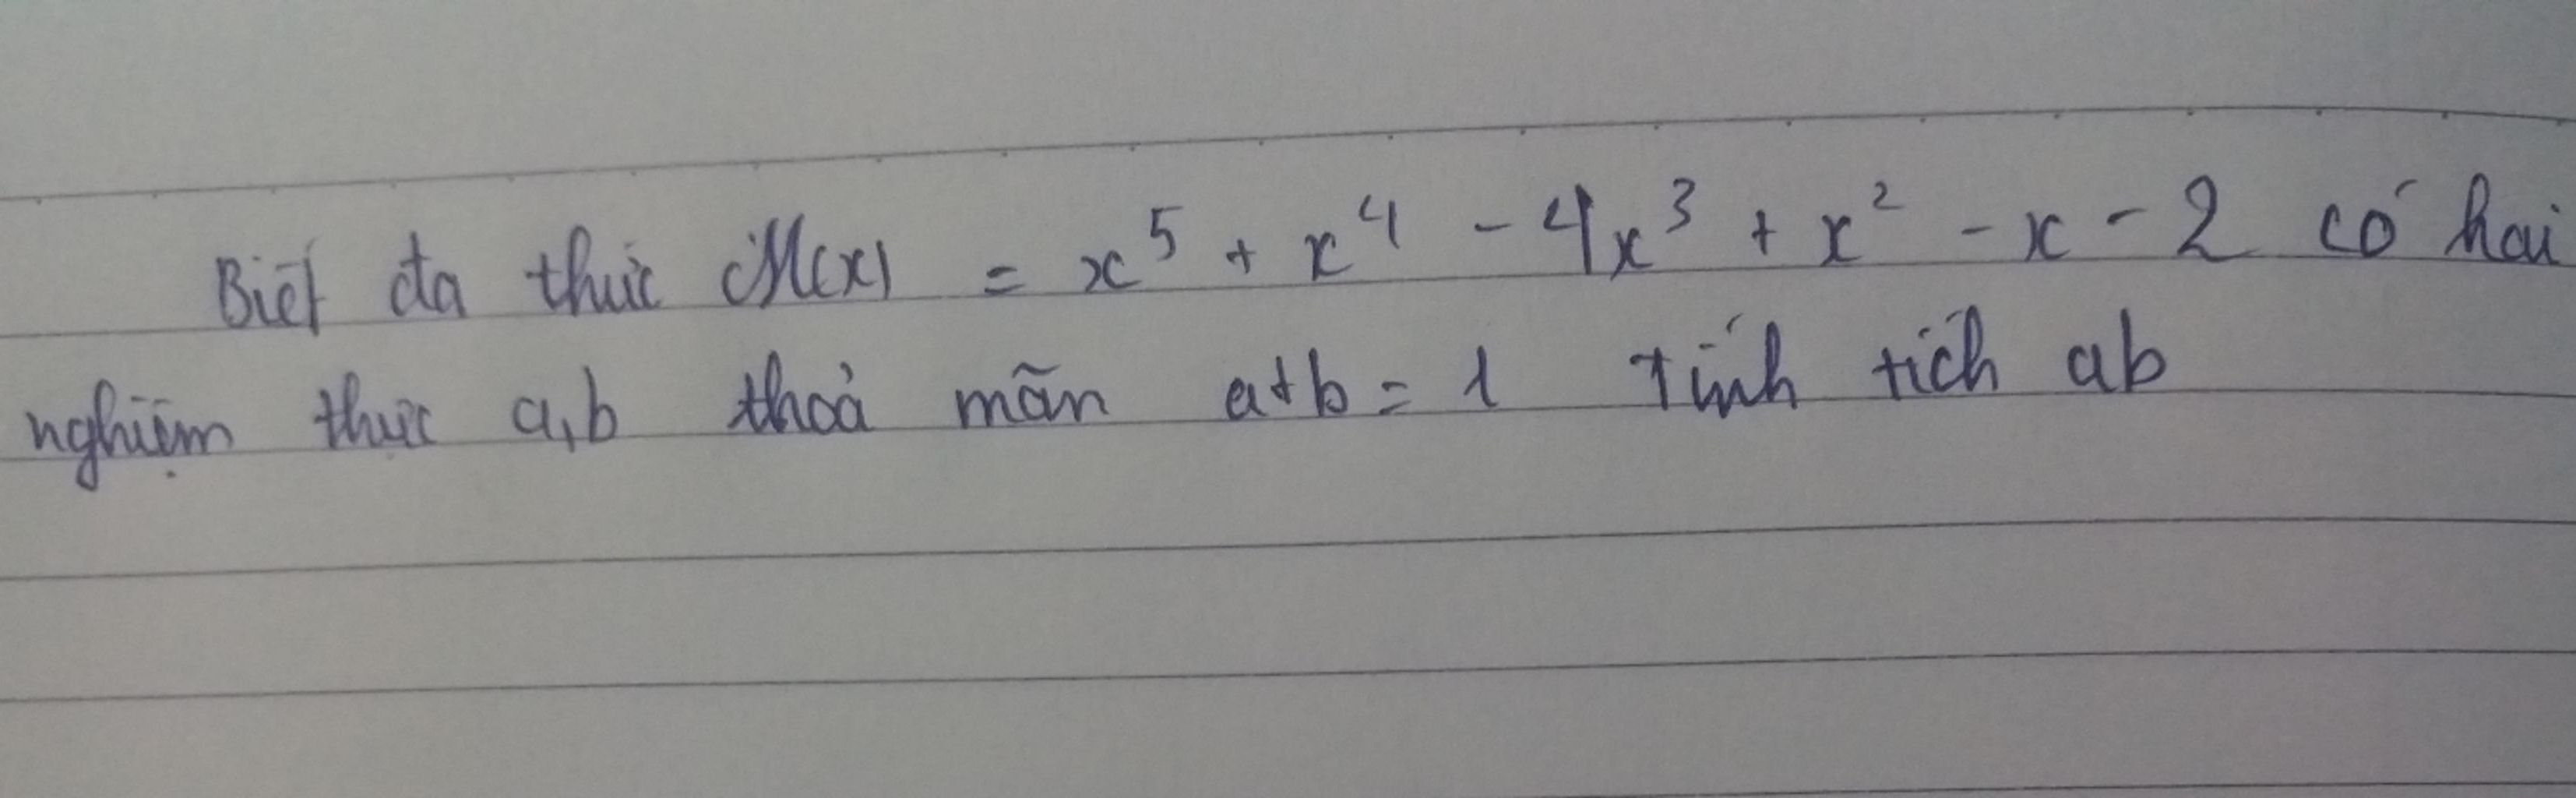 Biết đa thức M(x) = x⁵ + x⁴ - 4x³ + x² - x - 2 có hai
nghiệm thực a,b thoả mãn a+b = 1 Tính tích ab